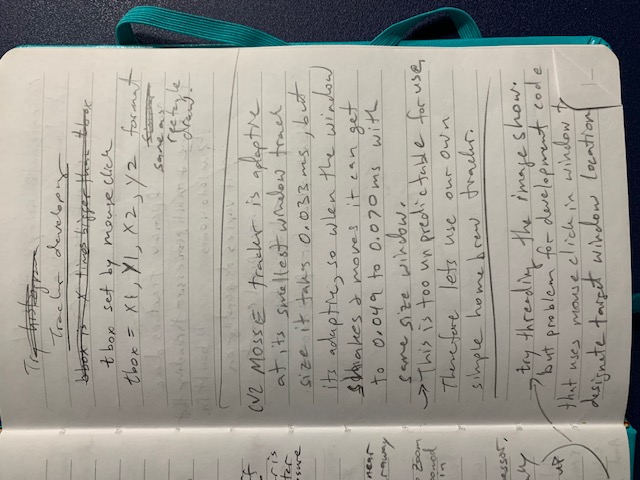 Try histogram
Tracker developing
bbox is x times bigger than tbox
tbox set by mouse click
tbox = X1, Y1, X2, Y2 format
same as
rectagle
draw.
CV2 MOSSE tracker is adaptive
at its smallest window track
size it takes 0.033 ms, but
its adaptive, so when the window
shakes & moves it can get
to 0.049 to 0.070 ms with
same size window.
→ This is too unpredictable for use,
Therefore lets use our own
simple homebrew tracker.
→ try threading the image show.
but problem for development code
that uses mouse click in window to
designate target window location
ff
er is
ter
osure
near
raway
o zoom
in
essor.
ally
up